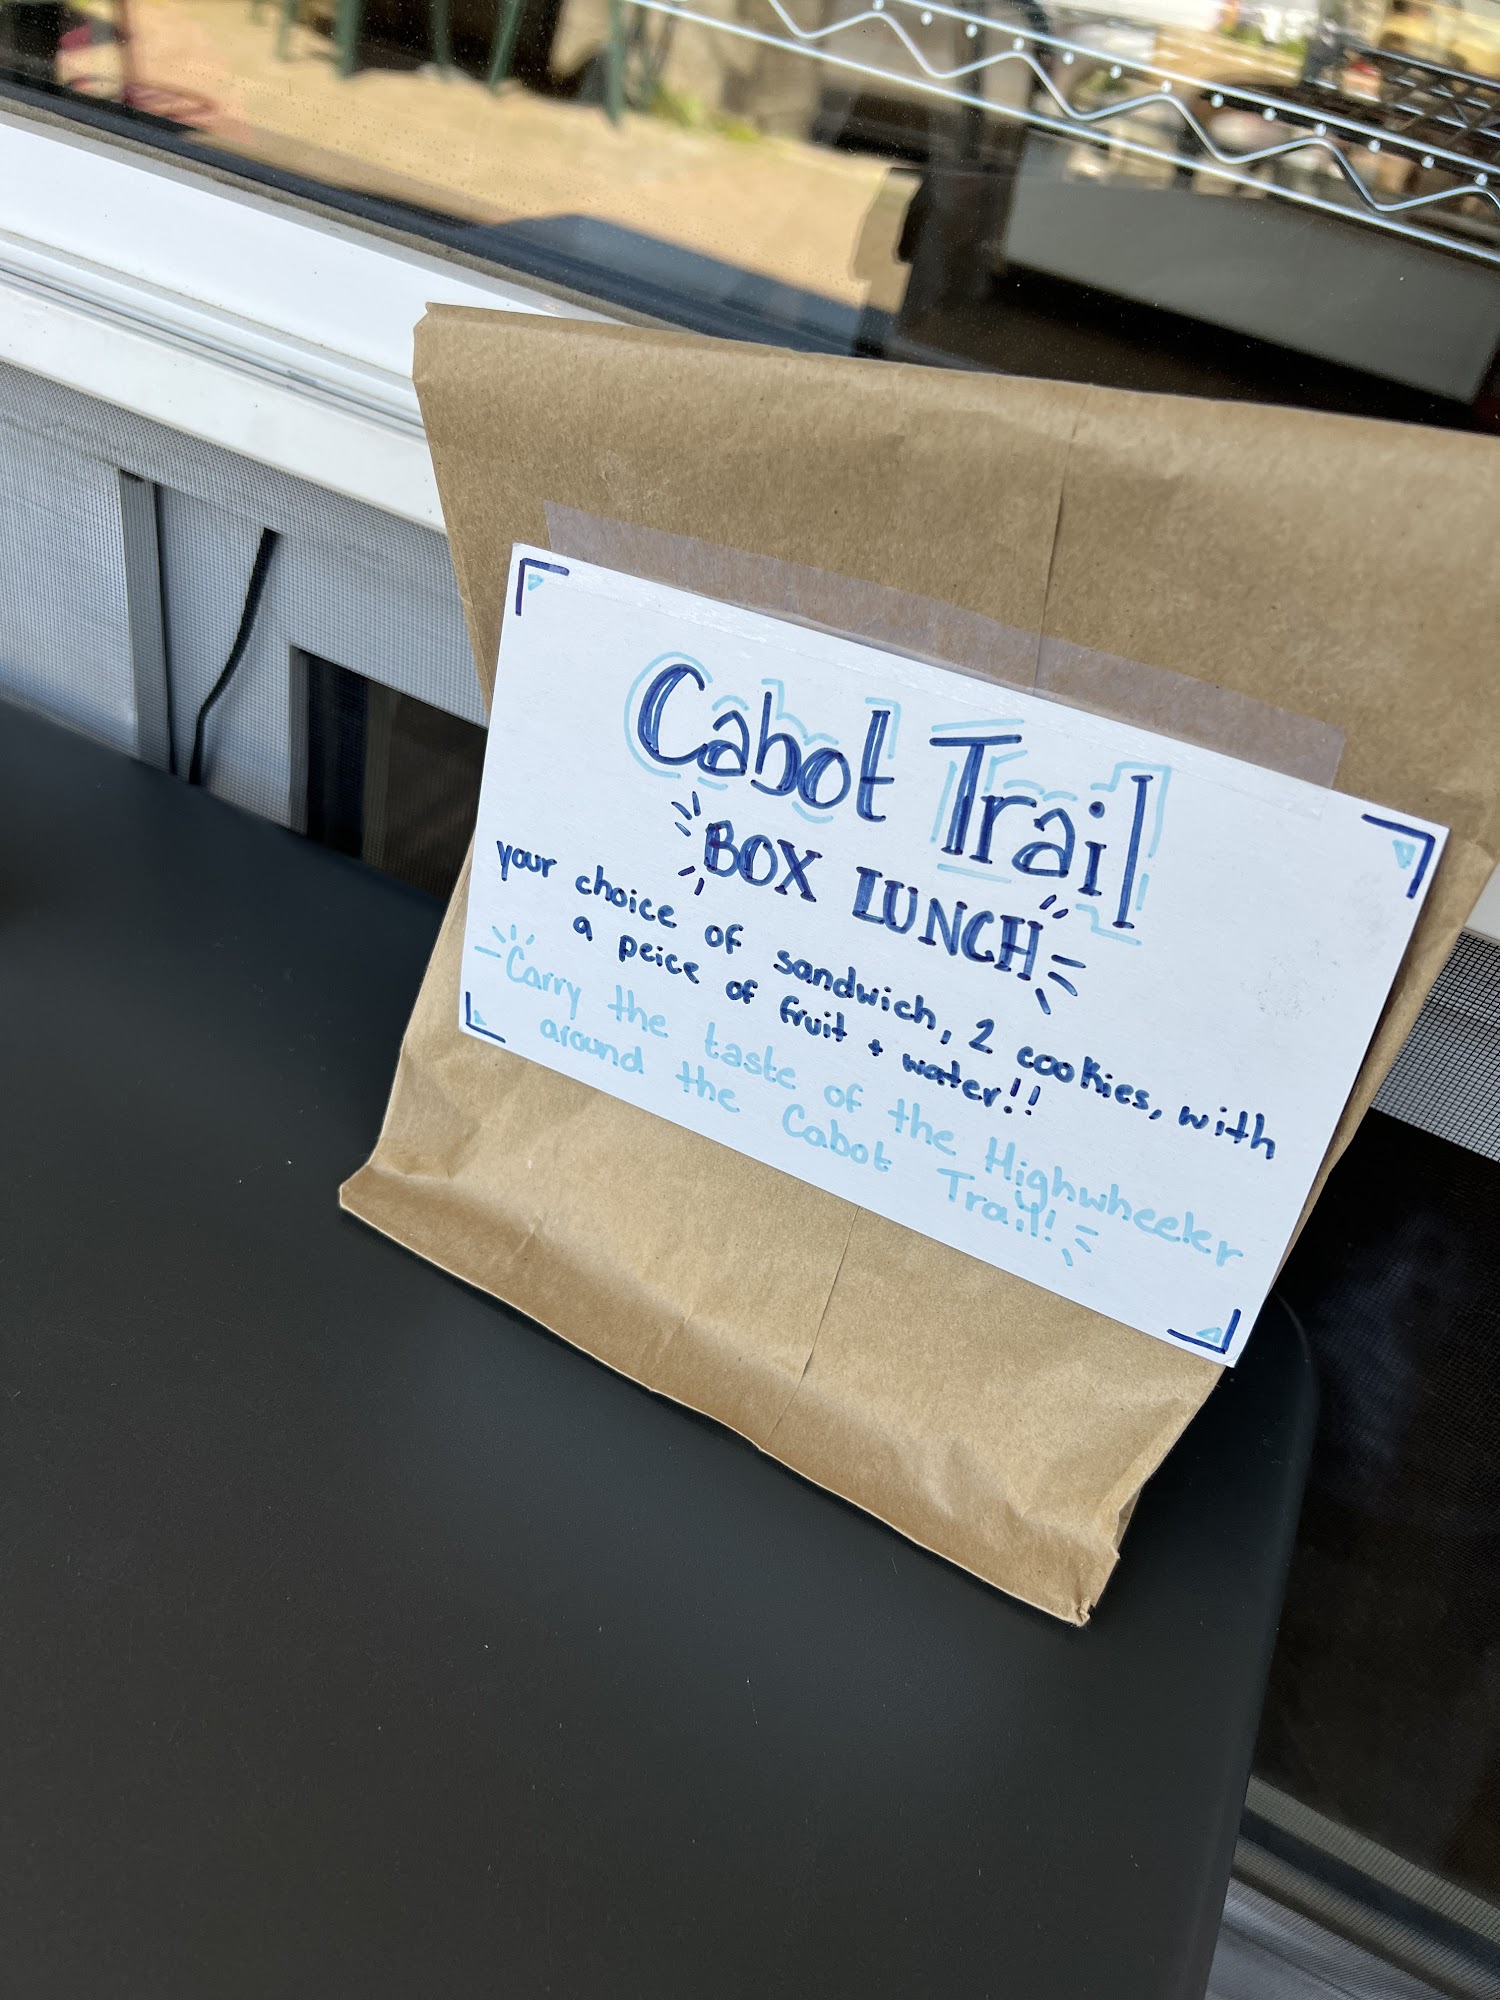 Cabot Trail
BOX LUNCH
your choice of sandwich, 2 cookies, with
a peice of fruit + water!!
Carry the taste of the Highwheeler
around the Cabot Trail!